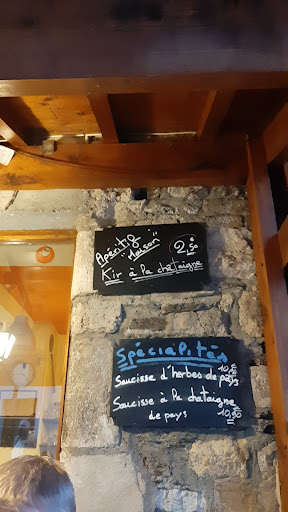 Apéritif
"Maison" 2,50€
Kir à la châtaigne
Spécialités
Saucisse d'herbes de pays 10,€
Saucisse à la chataigne
de pays 10,90€